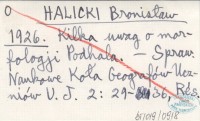 O
HALICKI Bronisław
1926. Kilka uwag o mor-
fologji Podhala. — Spraw.
Naukowe Koła Geografów Ucz-
niów U. J. 2: 29-36. Rés.